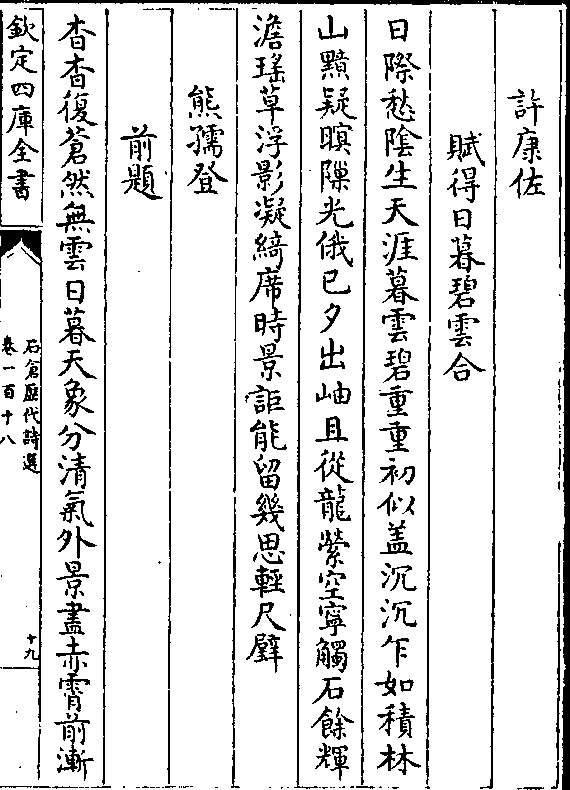 許康佐
賦得日暮碧雲合
日際愁陰生天涯暮雲碧重重初似盖沉沉乍如積林
山黯疑暝隙光俄已夕出岫且從龍縈空寧觸石餘輝
澹瑤草浮影凝綺席時景詎能留幾思輕尺璧
熊孺登
前題
杳杳復蒼然無雲日暮天象分清氣外景盡赤霄前漸
欽定四庫全書
石倉歷代詩選
卷一百十八
十九